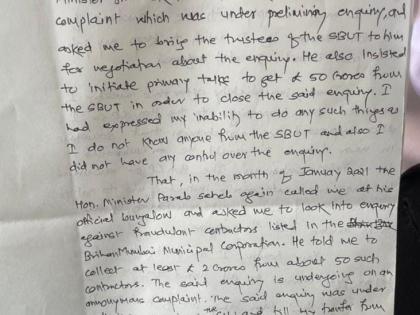 complaint which was under preliminary enquiry, and
asked me to bring the trustees of the SBUT to him
for negotiation about the enquiry. He also insisted
to initiate primary talks to get ₹ 50 Crores from
the SBUT in order to close the said enquiry. I
had expressed my inability to do any such things as
I do not know anyone from the SBUT and also I
did not have any control over the enquiry.
That, in the month of January 2021 the
Hon. Minister Parab saheb again called me at his
official bunglow and asked me to look into enquiry
against fraudulant contractors listed in the
BrihanMumbai Municipal Corporation. He told me to
collect at least ₹ 2 Crores from about 50 such
contractors. The said enquiry is undergoing on an
annonymous complaint. The said enquiry was under
the till my transfer from